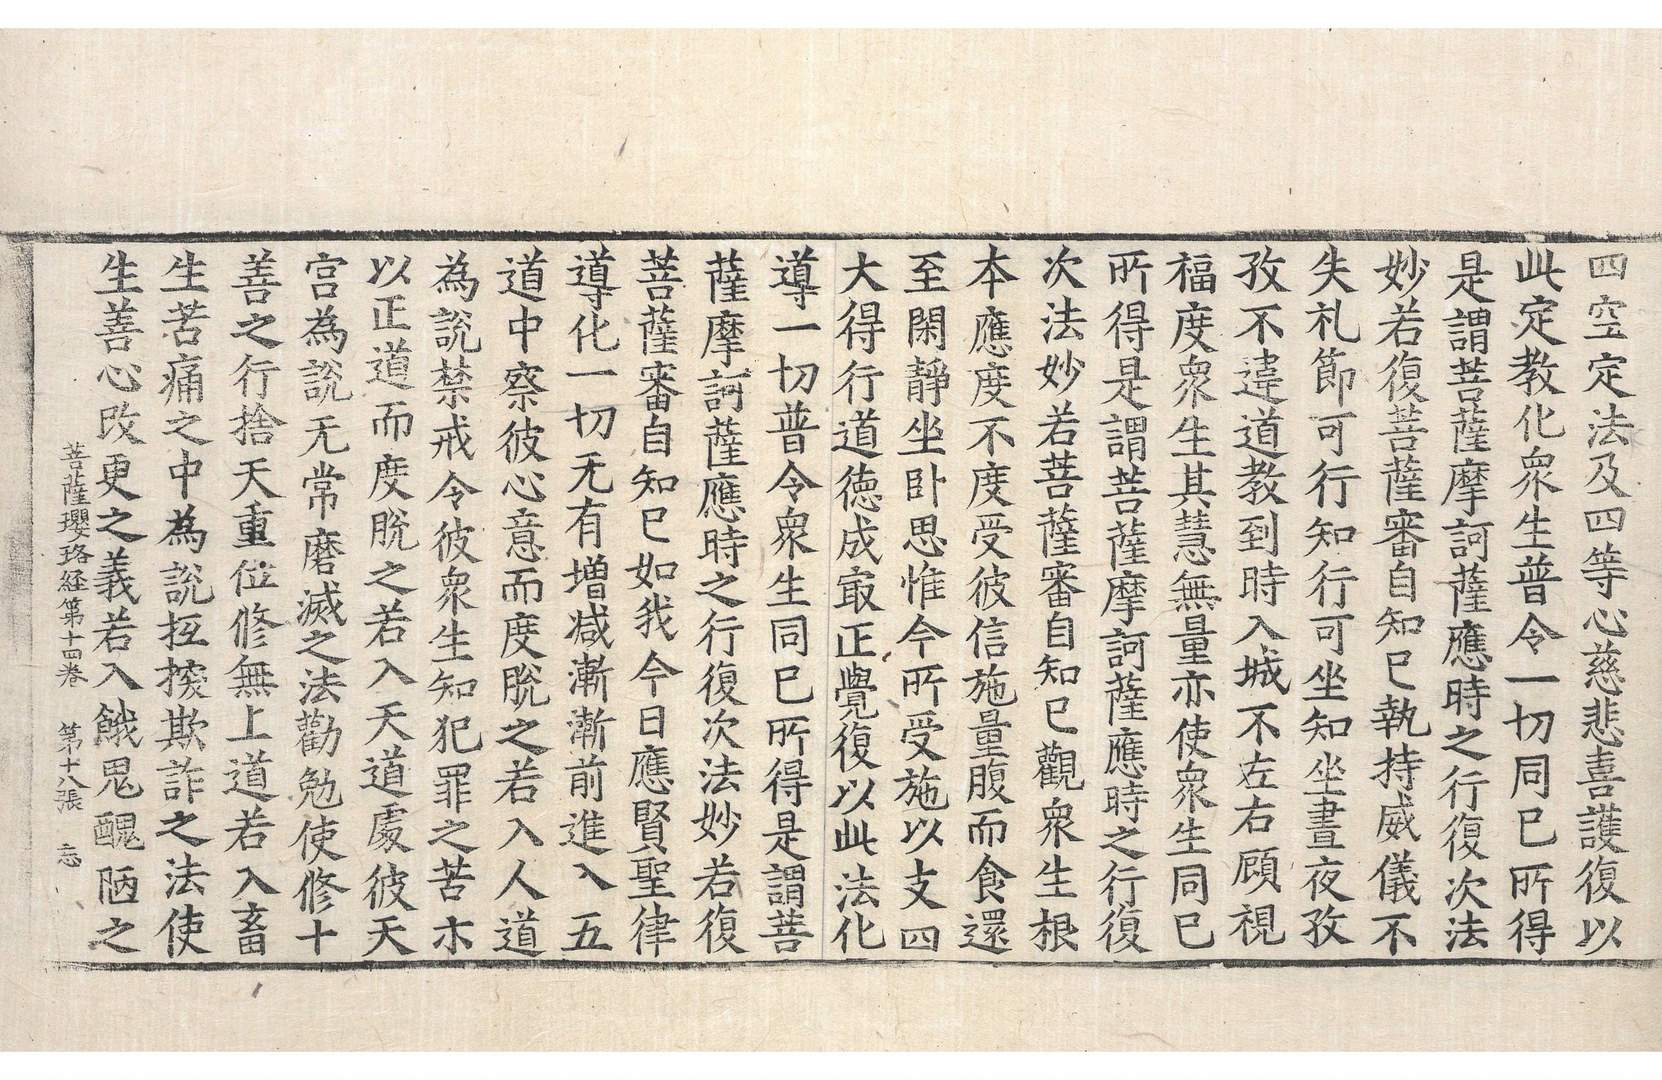 四空定法及四等心慈悲喜護復以
此定教化衆生普令一切同巳所得
是謂菩薩摩訶薩應時之行復次法
妙若復菩薩審自知巳執持威儀不
失礼節可行知行可坐知坐晝夜孜
孜不違道教到時入城不左右顧視
福度衆生其慧無量亦使衆生同巳
所得是謂菩薩摩訶薩應時之行復
次法妙若菩薩審自知巳觀衆生根
本應度不度受彼信施量腹而食還
至閑靜坐卧思惟今所受施以支四
大得行道德成㝡正覺復以此法化
導一切普令衆生同巳所得是謂菩
薩摩訶薩應時之行復次法妙若復
菩薩審自知巳如我今日應賢聖律
導化一切无有增減漸漸前進入五
道中察彼心意而度脫之若入人道
為說禁戒令彼衆生知犯罪之苦示
以正道而度脫之若入天道處彼天
宮為說无常磨滅之法勸勉使修十
善之行捨天重位修無上道若入畜
生苦痛之中為說抂㩱欺詐之法使
生善心改更之義若入餓鬼醜陋之
菩薩瓔珞經第十四卷 第十八張 忘